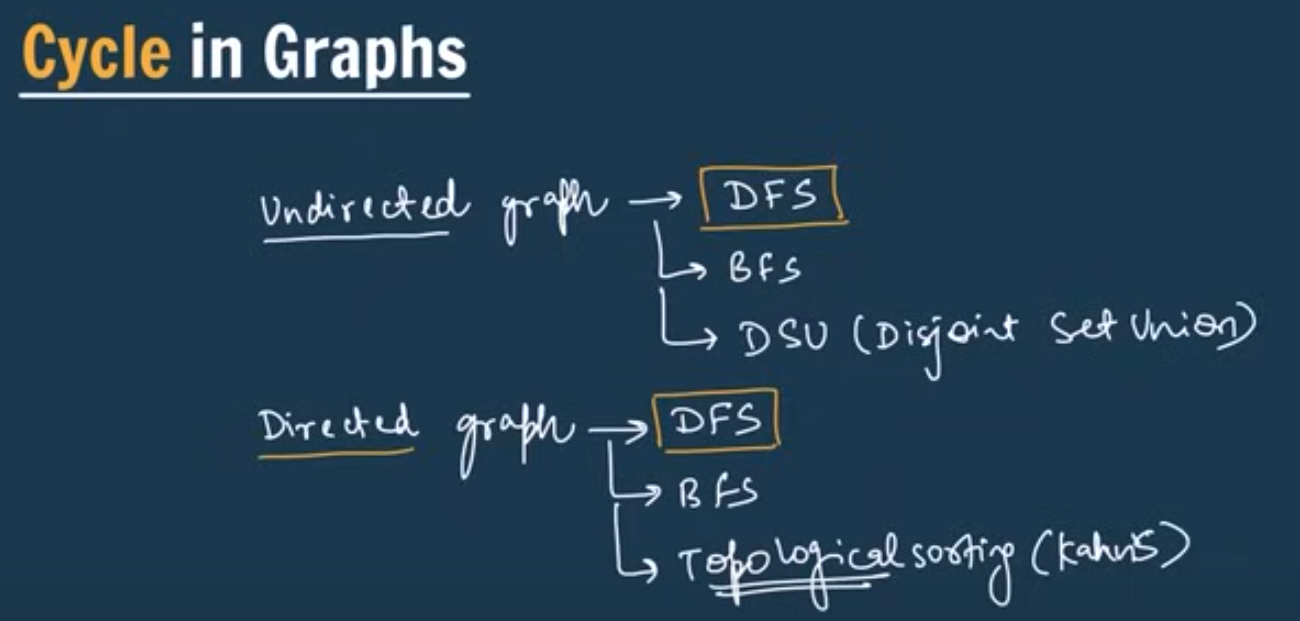 Cycle in Graphs
Undirected graph → DFS
↳ BFS
↳ DSU (Disjoint Set Union)
Directed graph → DFS
↳ BFS
↳ Topological sorting (Kahn's)